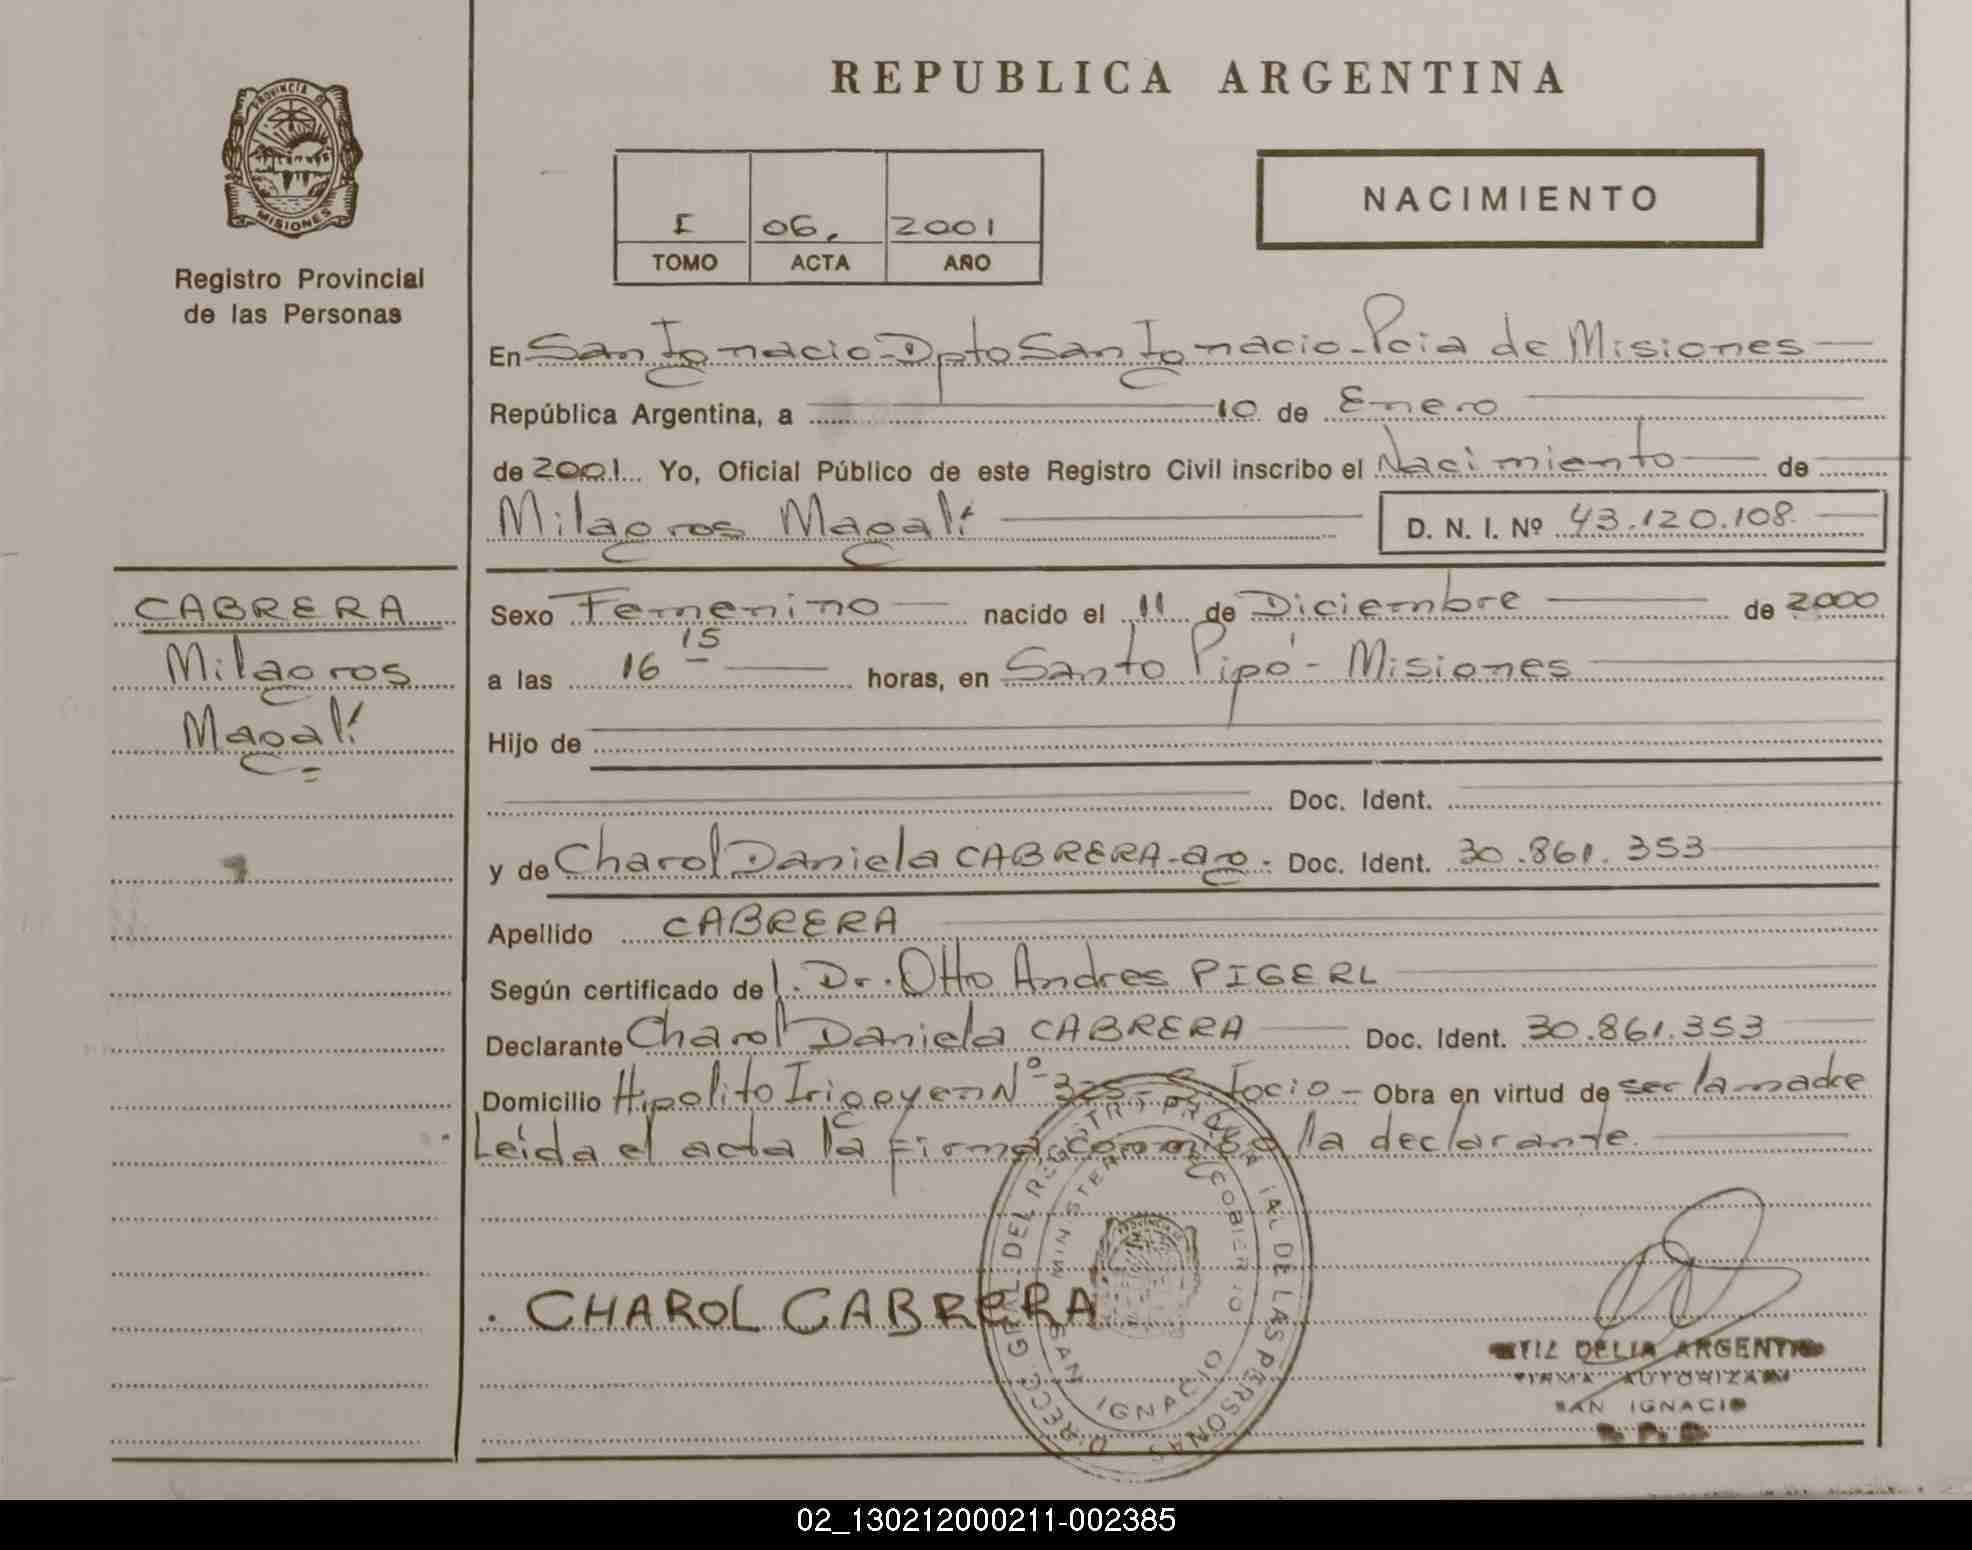 REPUBLICA ARGENTINA
PROVINCIA DE
MISIONES
Registro Provincial
de las Personas
I 06. 2001
TOMO ACTA AÑO
NACIMIENTO
En San Ignacio-Dpto San Ignacio-Pcia de Misiones
República Argentina, a 10 de Enero
de 2001 Yo, Oficial Público de este Registro Civil inscribo el Nacimiento de
Milagros Magalí D. N. I. Nº 43.120.108
CABRERA
Milagros
Magalí
Sexo Femenino nacido el 11 de Diciembre de 2000
a las 16 15 horas, en Santo Pipó - Misiones
Hijo de
Doc. Ident.
y de Charol Daniela CABRERA-arg. Doc. Ident. 30.861.353
Apellido CABRERA
Según certificado de Dr. Otto Andres PIGERL
Declarante Charol Daniela CABRERA Doc. Ident. 30.861.353
Domicilio Hipolito Irigoyen Nº 325 - Obra en virtud de ser la madre
Leída el acta la firma conmigo la declarante.
CHAROL CABRERA
DIRECC. GRAL. DEL REGISTRO PROVINCIAL DE LAS PERSONAS
MINISTERIO DE GOBIERNO
SAN IGNACIO
DELIA ARGENTI
FIRMA AUTORIZADA
SAN IGNACIO
02_130212000211-002385